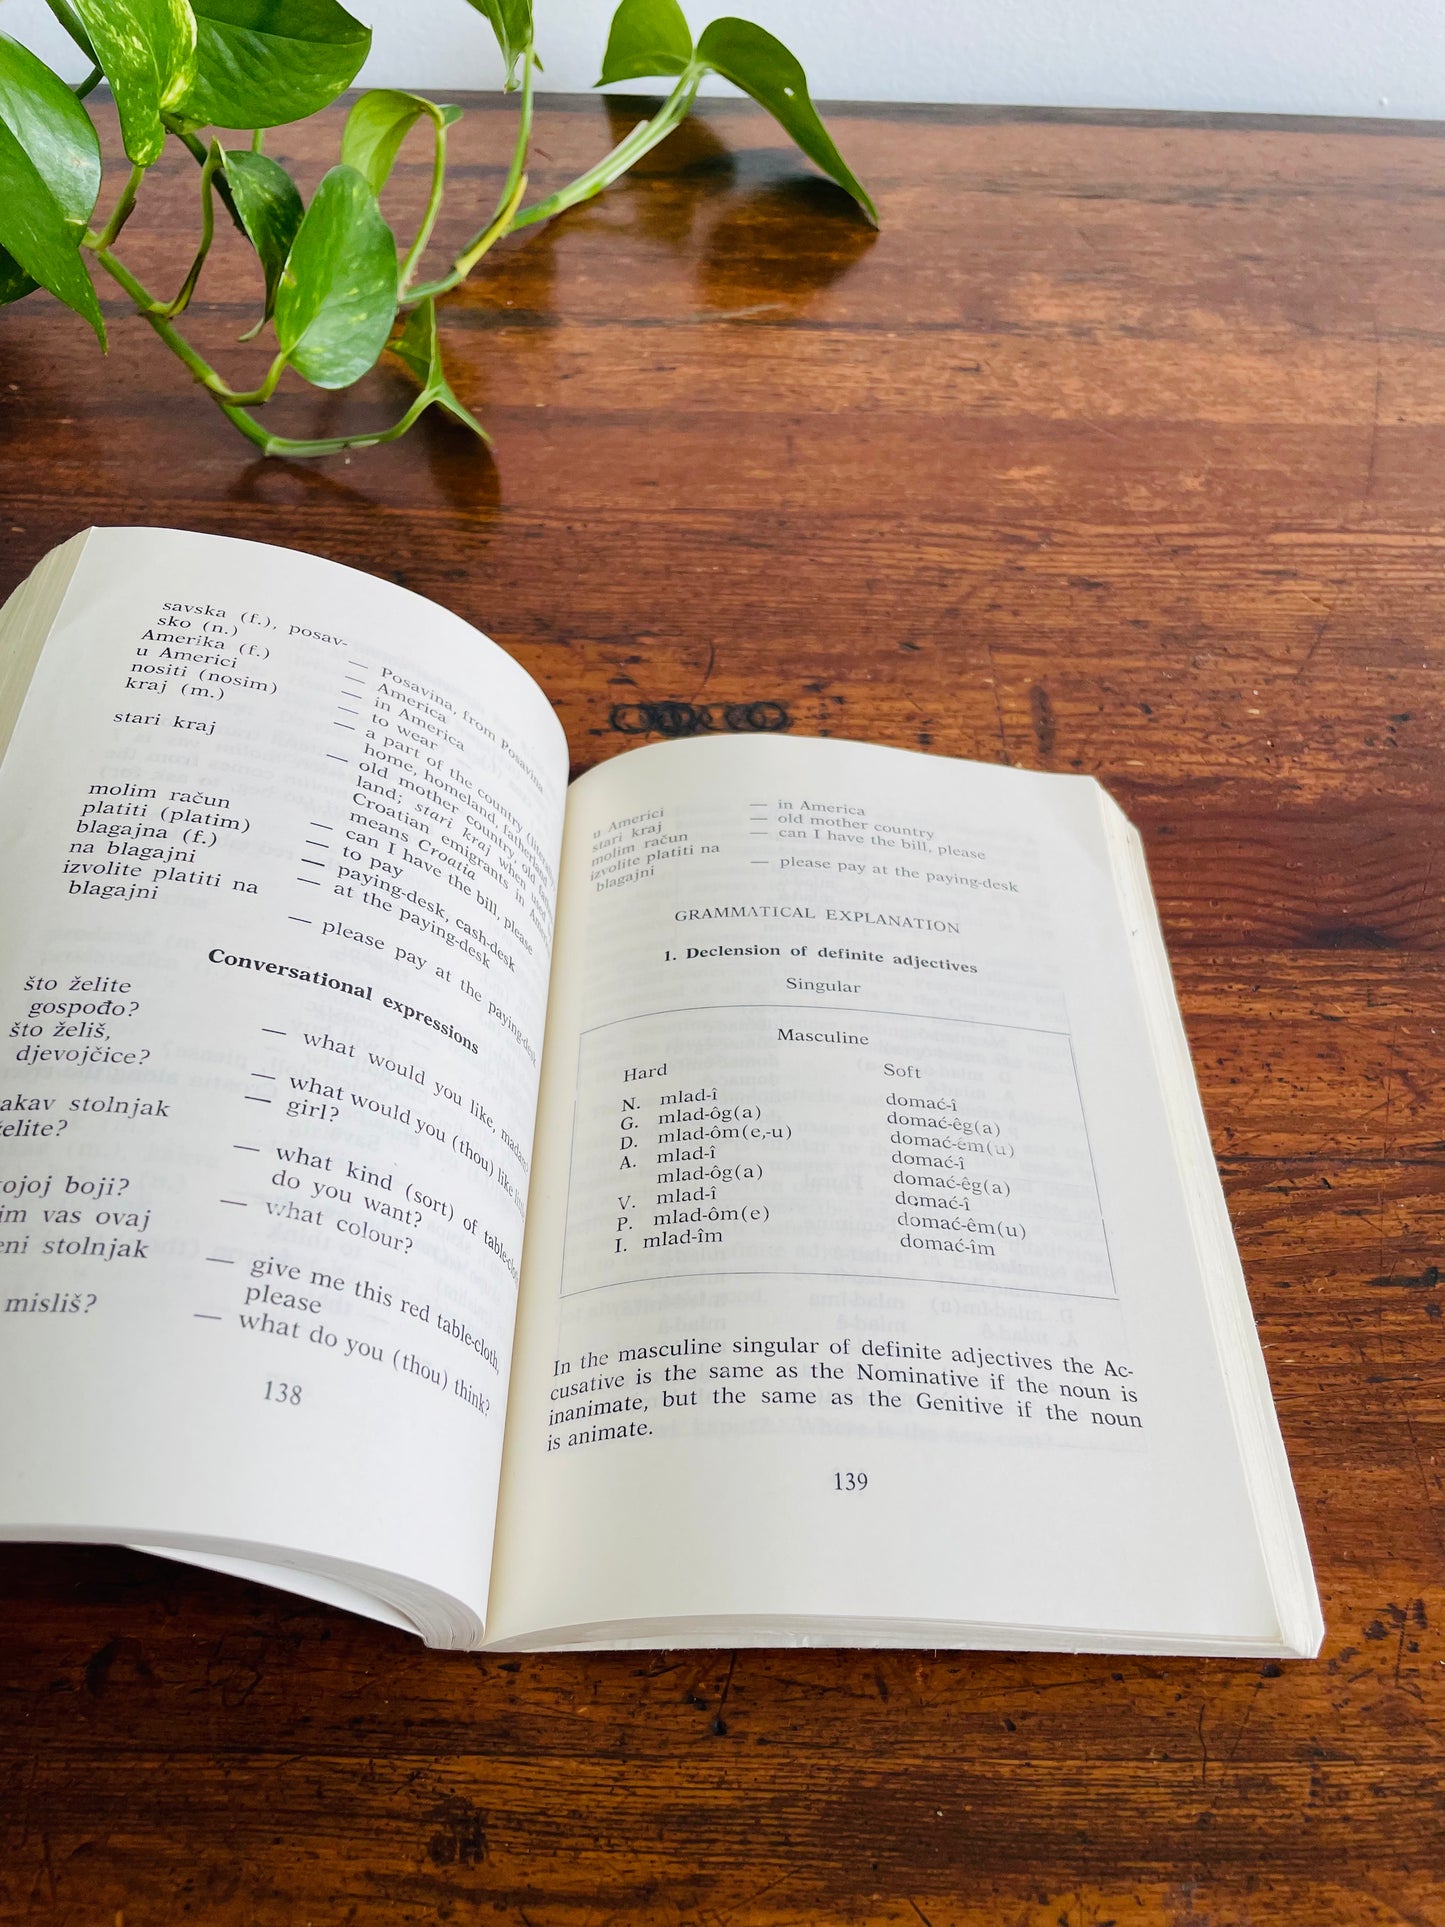 savska (f.), posav-
sko (n.) — Posavina, from Posavina
Amerika (f.) — America
u Americi — in America
nositi (nosim) — to wear
kraj (m.) — a part of the country
home, homeland, fatherland
stari kraj — old mother country, old
land; stari kraj when used
Croatian emigrants in
means Croatia
molim račun — can I have the bill, please
platiti (platim) — to pay
blagajna (f.) — paying-desk, cash-desk
na blagajni — at the paying-desk
izvolite platiti na
blagajni — please pay at the paying-desk
Conversational expressions
što želite
gospođo? — what would you like, madam?
što želiš,
djevojčice? — what would you (thou) like,
girl?
akav stolnjak
elite? — what kind (sort) of table-cloth
do you want?
ojoj boji? — what colour?
im vas ovaj
eni stolnjak — give me this red table-cloth,
please
misliš? — what do you (thou) think?
138
u Americi — in America
stari kraj — old mother country
molim račun — can I have the bill, please
izvolite platiti na
blagajni — please pay at the paying-desk
GRAMMATICAL EXPLANATION
1. Declension of definite adjectives
Singular
Masculine
Hard Soft
N. mlad-î domać-î
G. mlad-ôg(a) domać-êg(a)
D. mlad-ôm(e,-u) domać-ém(u)
A. mlad-î domać-î
mlad-ôg(a) domać-êg(a)
V. mlad-î domać-î
P. mlad-ôm(e) domać-êm(u)
I. mlad-îm domać-îm
In the masculine singular of definite adjectives the Ac-
cusative is the same as the Nominative if the noun is
inanimate, but the same as the Genitive if the noun
is animate.
139